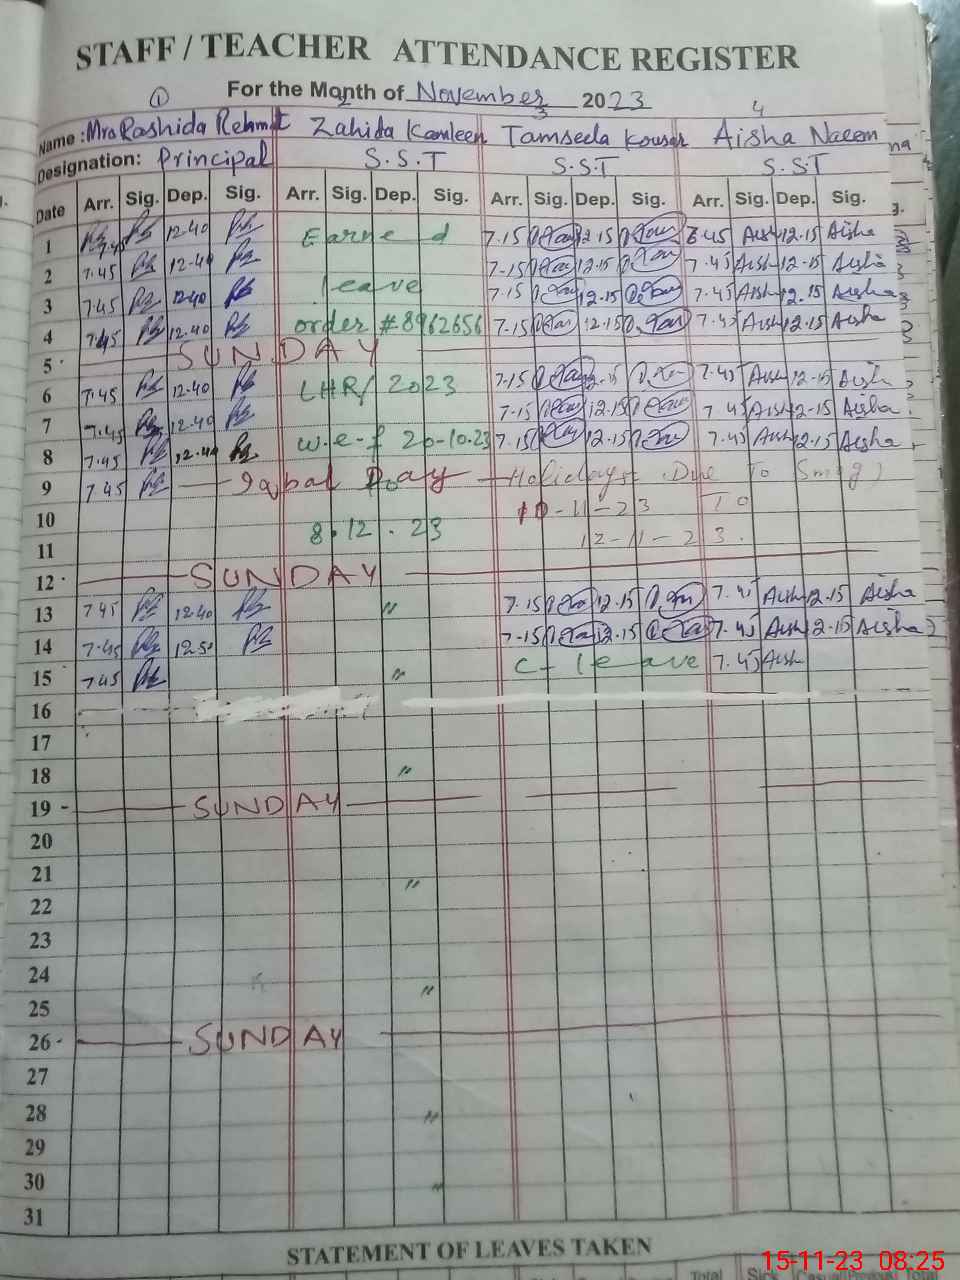 STAFF / TEACHER ATTENDANCE REGISTER
For the Month of November 2023
1 2 3 4
Name : Mrs Rashida Rehmat Zahida Kamleen Tamseela Kousar Aisha Naeem
Designation: Principal S.S.T S.S.T S.S.T
Date Arr. Sig. Dep. Sig. Arr. Sig. Dep. Sig. Arr. Sig. Dep. Sig. Arr. Sig. Dep. Sig.
1 7.45 12.40 Earned 7.15 12.15 Aish 12.15 Aisha
2 7.45 12.40 7.15 12.15 7.45 Aish 12.15 Aisha
3 7.45 12.40 leave 7.15 12.15 7.45 Aish 12.15 Aisha
4 7.45 12.40 order #8962656 7.15 12.15 7.45 Aish 12.15 Aisha
5 SUNDAY
6 7.45 12.40 LHR/ 2023 7.15 12.15 7.45 Aish 12.15 Aisha
7 7.45 12.40 7.15 12.15 7.45 Aish 12.15 Aisha
8 7.45 12.40 w.e.f 20-10.23 7.15 12.15 7.45 Aish 12.15 Aisha
9 7.45 Iqbal Day Holidays Due To Smog
10 10-11-23 TO
11 8.12.23 12-11-23.
12 SUNDAY
13 7.45 12.40 " 7.15 12.15 7.45 Aish 12.15 Aisha
14 7.45 12.50 7.15 12.15 7.45 Aish 12.15 Aisha
15 7.45 " C- leave 7.45 Aish
16
17
18 "
19 - SUNDAY
20
21 "
22
23
24 "
25
26 - SUNDAY
27
28 "
29
30 "
31
STATEMENT OF LEAVES TAKEN
Total Sick
15-11-23 08:25